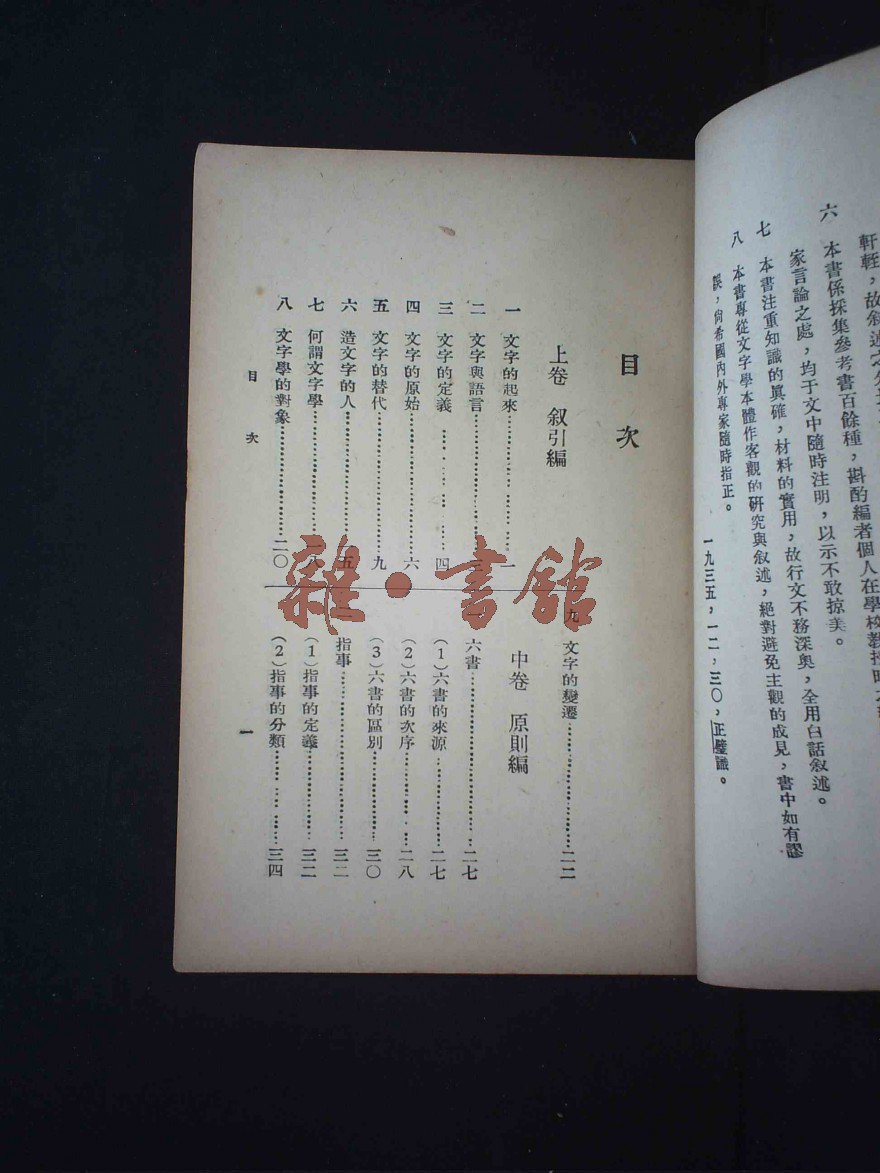 軒輊，故叙述之
六 本書係採集參考書百餘種，斟酌編者個人在學校教授時
家言論之處，均于文中隨時注明，以示不敢掠美。
七 本書注重知識的眞確，材料的實用，故行文不務深奥，全用白話叙述。
八 本書專從文字學本體作客觀的研究與叙述，絕對避免主觀的成見，書中如有謬
誤，尙希國內外專家隨時指正。
一九三五，一二，三〇，正璧識。
目次
上卷 叙引編
一 文字的起來………一
二 文字與語言………
三 文字的定義………四
四 文字的原始………六
五 文字的替代………九
六 造文字的人………五
七 何謂文字學………八
八 文字學的對象………二〇
九 文字的變遷………二二
中卷 原則編
一 六書………二七
（1）六書的來源………二七
（2）六書的次序………二八
（3）六書的區別………三〇
指事………三二
（1）指事的定義………三二
（2）指事的分類………三四
目次
一
雜·書館